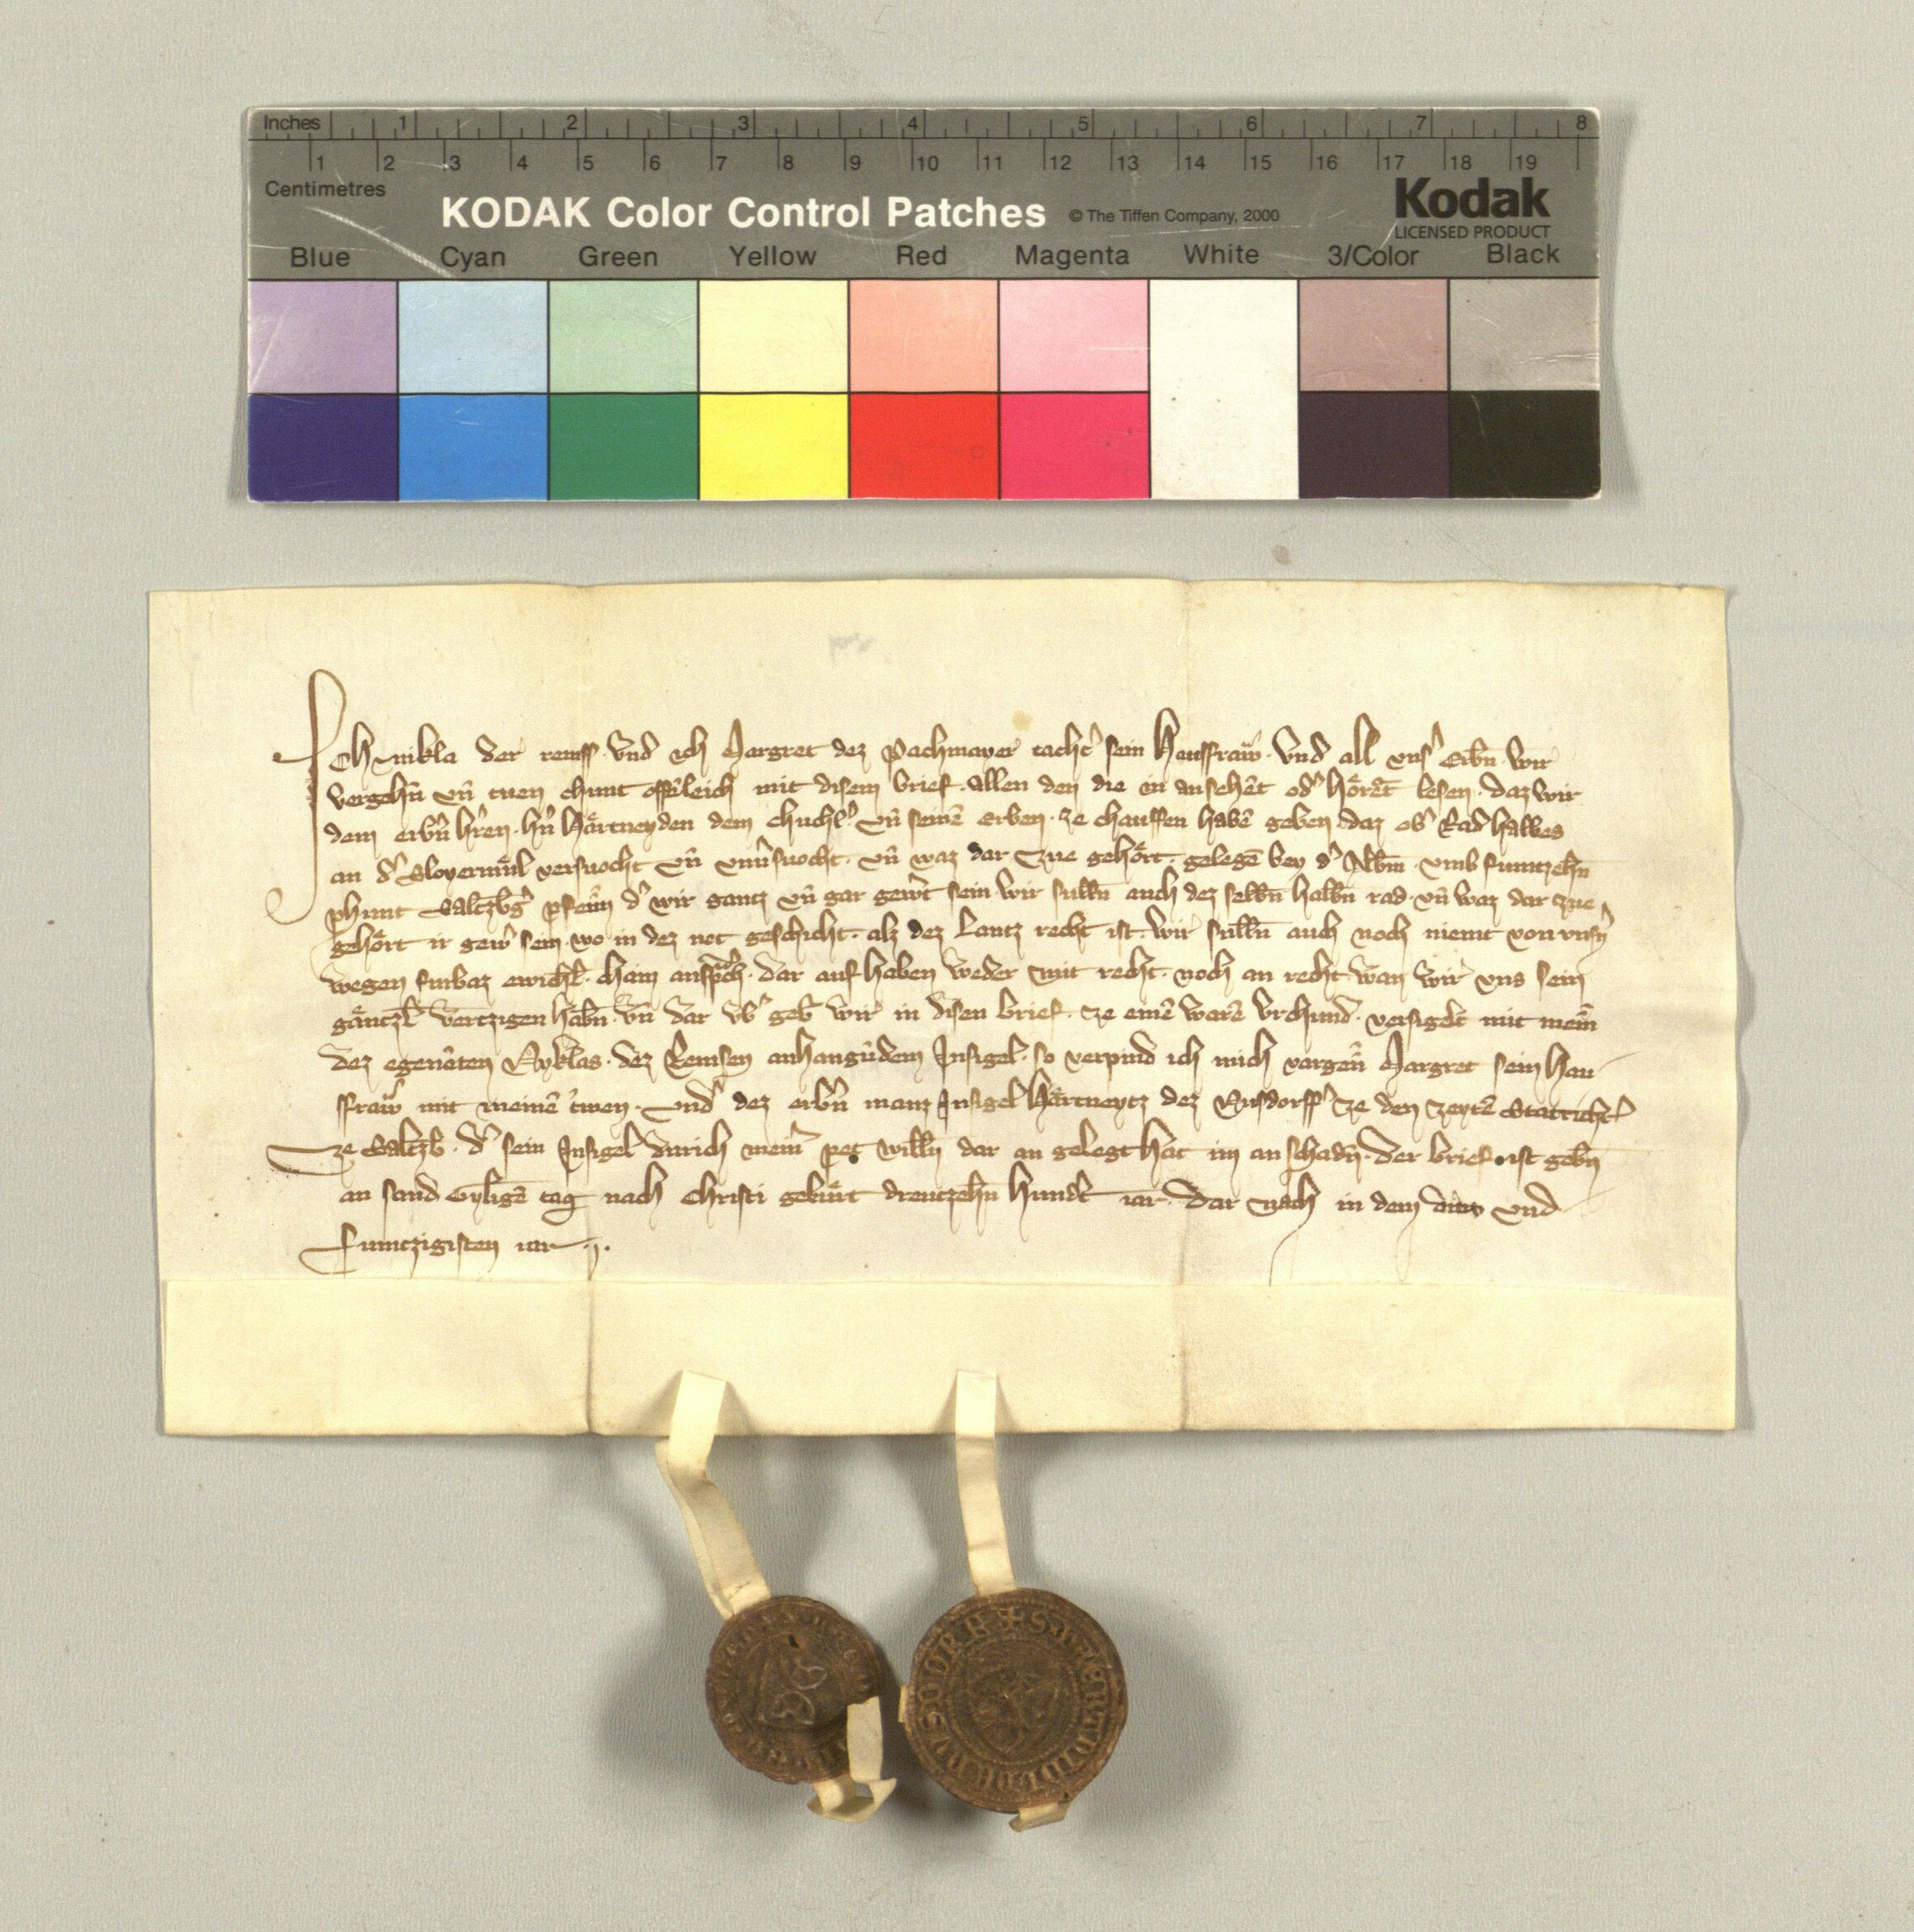 Inches 1 2 3 4 5 6 7 8
1 2 3 4 5 6 7 8 9 10 11 12 13 14 15 16 17 18 19
Centimetres
KODAK Color Control Patches © The Tiffen Company, 2000 Kodak
LICENSED PRODUCT
Blue Cyan Green Yellow Red Magenta White 3/Color Black
Ich Nikla der remss. Vnd ich Margret dez Pachmayer tacht᾽ sein Hausfraw̄. Vnd all vns᾽ Erbn̄. Wir
vergehn̄ vn̄ tuen chunt offn̄leich mit disem brief. Allen den die in ansehe᷑t od᾽ hőre᷑t lesen. daz wir
dem erbn̄ h᾽ren. h᾽n Hårtneyden dem chuchl᾽. vn̄ seine᷑ Erben. ze chauffen habe᷑ geben. daz ob᾽ Rad halbes
an d᾽ Sloyermůl versuocht vn̄ vnu᾽suocht. vn̄ waz dar zue gehőrt. gelege᷑ bey d᾽ Albm̄. vmb fumtzehn̄
phunt Saltzbg᾽ pfen̄ d᾽ wir gantz vn̄ gar gew᾽t sein. wir sulln̄ auch dez selbn̄ halbn̄ rad. vn̄ waz dar zue
gehőrt ir gew᾽ sein. wo in dez not geschicht. alz dez Lantz recht ist. Wir sulln̄ auch noch niemt von vns᾽n
wegen furbaz ewichl᾽. chain ansprach. dar auf haben weder mit recht. noch an recht. wan wir vns sein
gåntzl᾽ vertzigen habn̄. vn̄ dar vb᾽ geb᾽ wir in disen brief. ze eine᷑ ware᷑ vrchund. versigelt mit mein̄
dez egen̄ten Nyklas. dez Remsen anhangu᷑dem Insigel. so verpind ich mich vorgen̄ Margret sein hau
sfraw̄ mit meine᷑ trwen. vnd᾽ dez erbn̄ manz Insigel Hårtneytz dez Nusdorff᾽ ze den zeyte᷑ Statricht᾽
ze Saltzb. d᾽ sein Insigel durich mein᾽ pet willn̄ dar an gelegt hat im an schadn̄. Der brief ist gebn̄
an sand Gylige᷑ tag nach Christi gebůrt dreutzehn̄ hund᾽t iar. Dar nach in dem und
fumtzigisten iar.